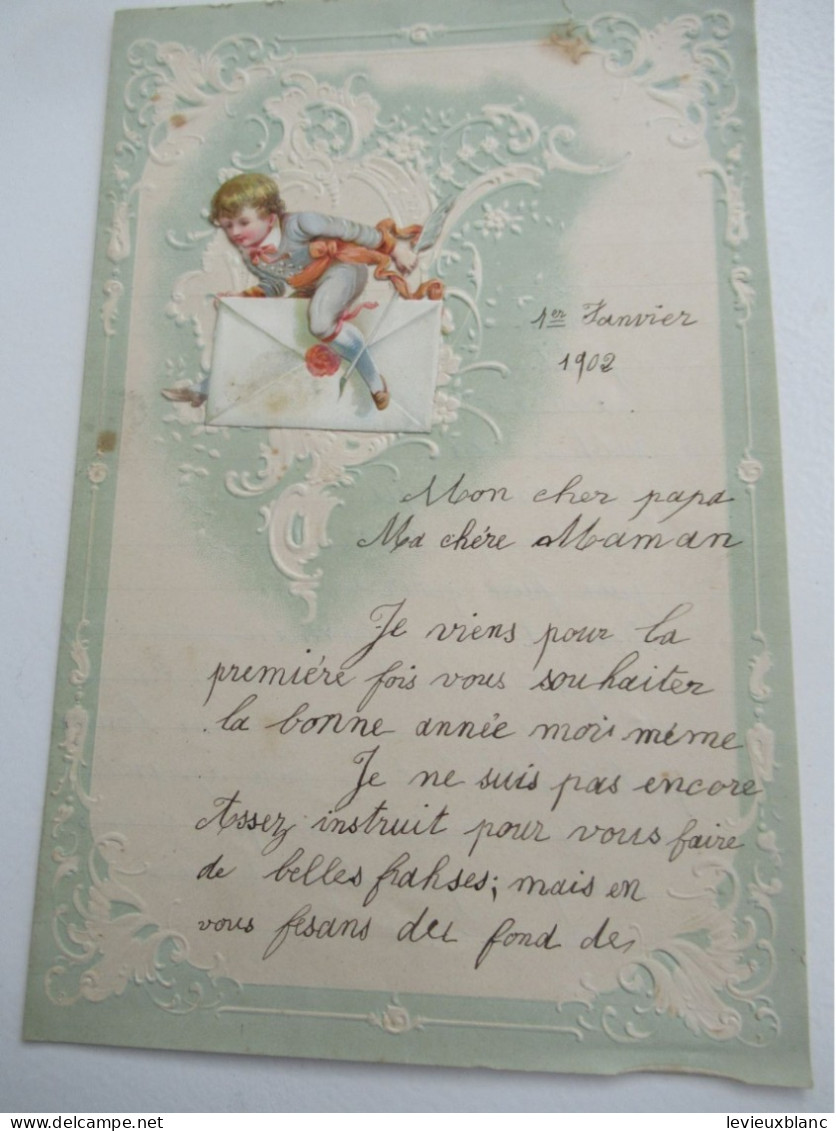 1er Janvier
1902
Mon cher papa
Ma chére Maman
Je viens pour la
premiére fois vous souhaiter
la bonne année moi même
Je ne suis pas encore
Assez instruit pour vous faire
de belles frahses; mais en
vous fesans du fond de
www.delcampe.net
levieuxblanc